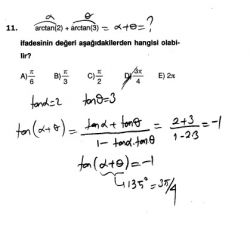 α θ
11. arctan(2) + arctan(3) = α+θ=?
ifadesinin değeri aşağıdakilerden hangisi olabi-
lir?
A) π/6 B) π/3 C) π/2 D) 3π/4 E) 2π
tanα=2 tanθ=3
tan(α+θ) = tanα + tanθ / 1 - tanα.tanθ = 2+3 / 1-2.3 = -1
tan(α+θ) = -1
→135°=3π/4